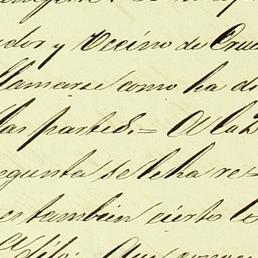 dor y Vecino de Crue
llamarse como ha di
las partes.= A la 2
egunta se le ha re=
es tambien cierto lo